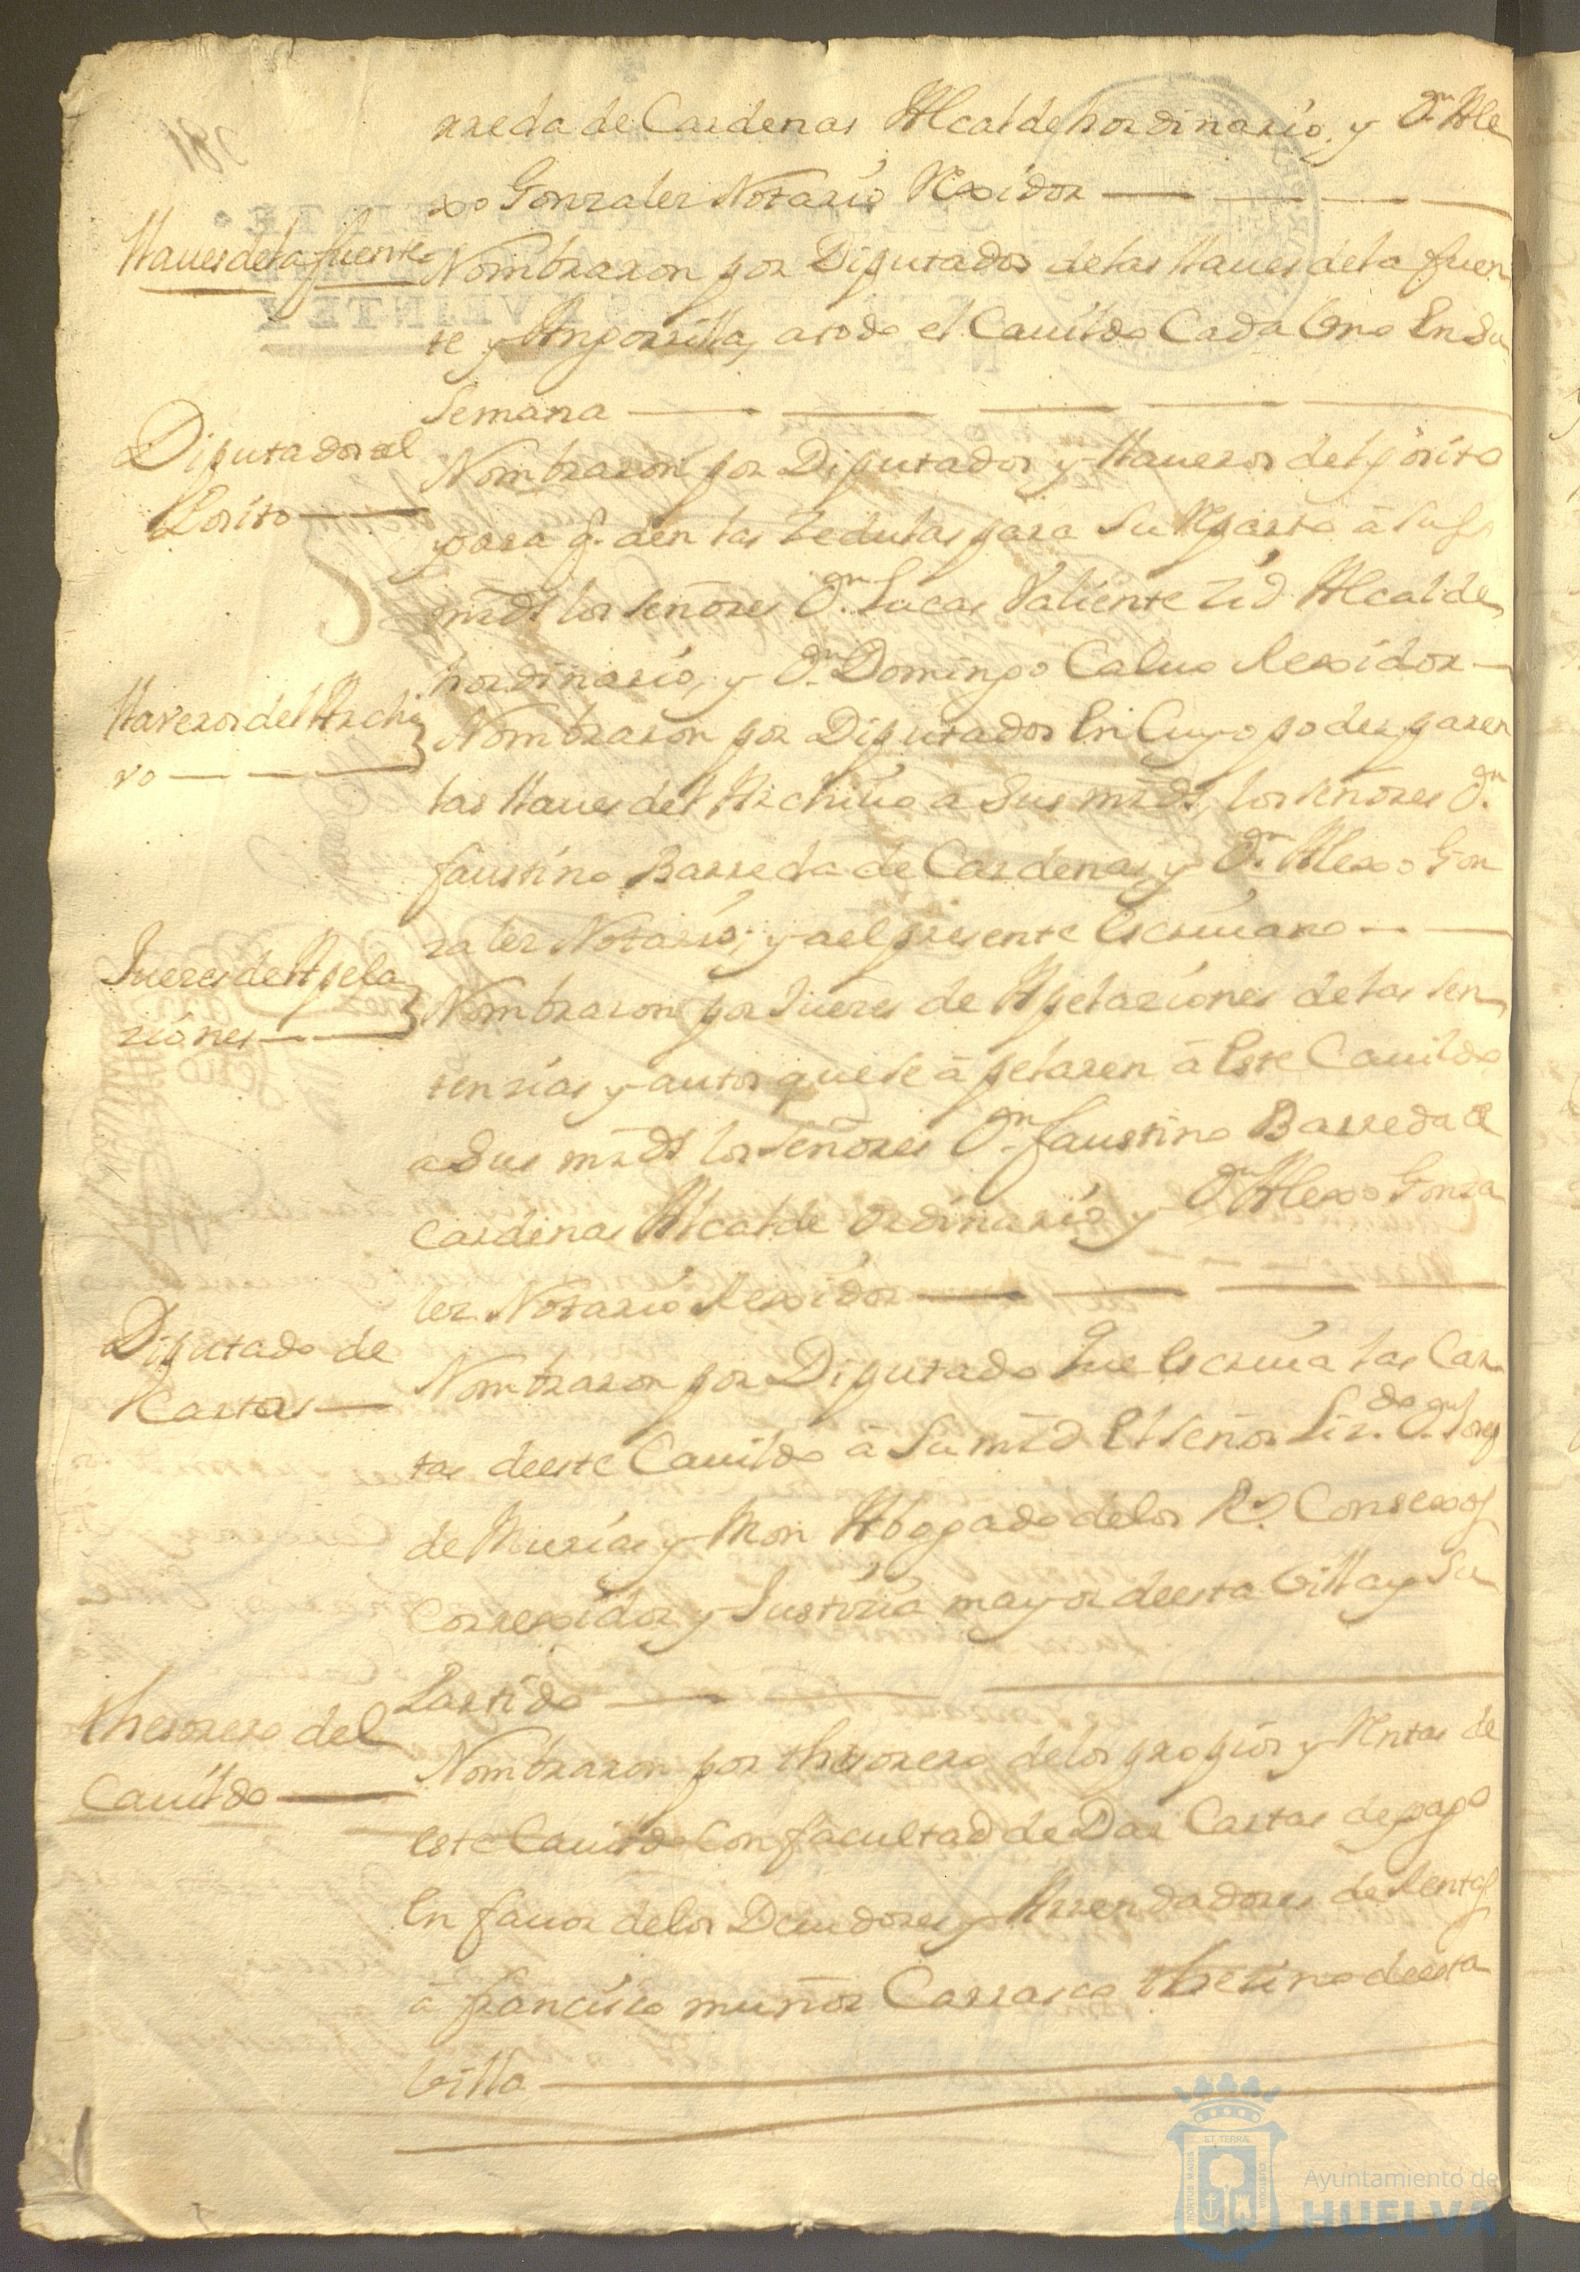 rreda de Cardenas Alcalde hordinario, y Dn. Ale
xo Gonzalez Notario Rexidor
llaues de la fuente
Nombraron por Diputados de las llaues de la fuen
te y Angorrilla, a todo el Cauildo Cada Uno En Su
Semana
Diputados del
Posito
Nombraron por Diputados y llaueros del posito
para q. den las Zedulas para Su Reparto â Sus
mrds los señores Dn. Lucas Valiente Zid Alcalde
hordinario, y Dn. Domingo Caluo Rexidor
llaveros del Archi
vo
Nombraron por Diputados En Cuyo poder paren
las llaues del Archiuo a Sus mrds, los señores Dn.
faustino Barreda de Cardenas, y Dn. Alexo Gon
zalez Notario; y a el presente Escriuano
Juezes de Apela
ziones
Nombraron por Juezes de Apelaziones de las Sen
tenzias y autos que se âpelaren â Este Cauildo
a Sus mrds los señores Dn. faustino Barreda de
Cardenas Alcalde Ordinario, y Dn. Alexo Gonza
lez Notario Rexidor
Diputado de
Cartas
Nombraron por Diputado Que Escriua las Car
tas deeste Cauildo â Su mrd El señor Liz.do Dn.
de Murias y Mon Abogado de los Rs. Consexos
Correxidor y Justizia mayor deesta Villa y Su
Partido
thesorero del
Cauildo
Nombraron por thesorero de los propios y Rentas de
este Cauildo Con facultad de Dar Cartas de pago
En fauor de los Deudores y Arrendadores de Rentas
â francisco muñoz Carrasco deesta
Villa
PORTUS MARIS
ET TERRÆ
CUSTODIA
Ayuntamiento de
HUELVA